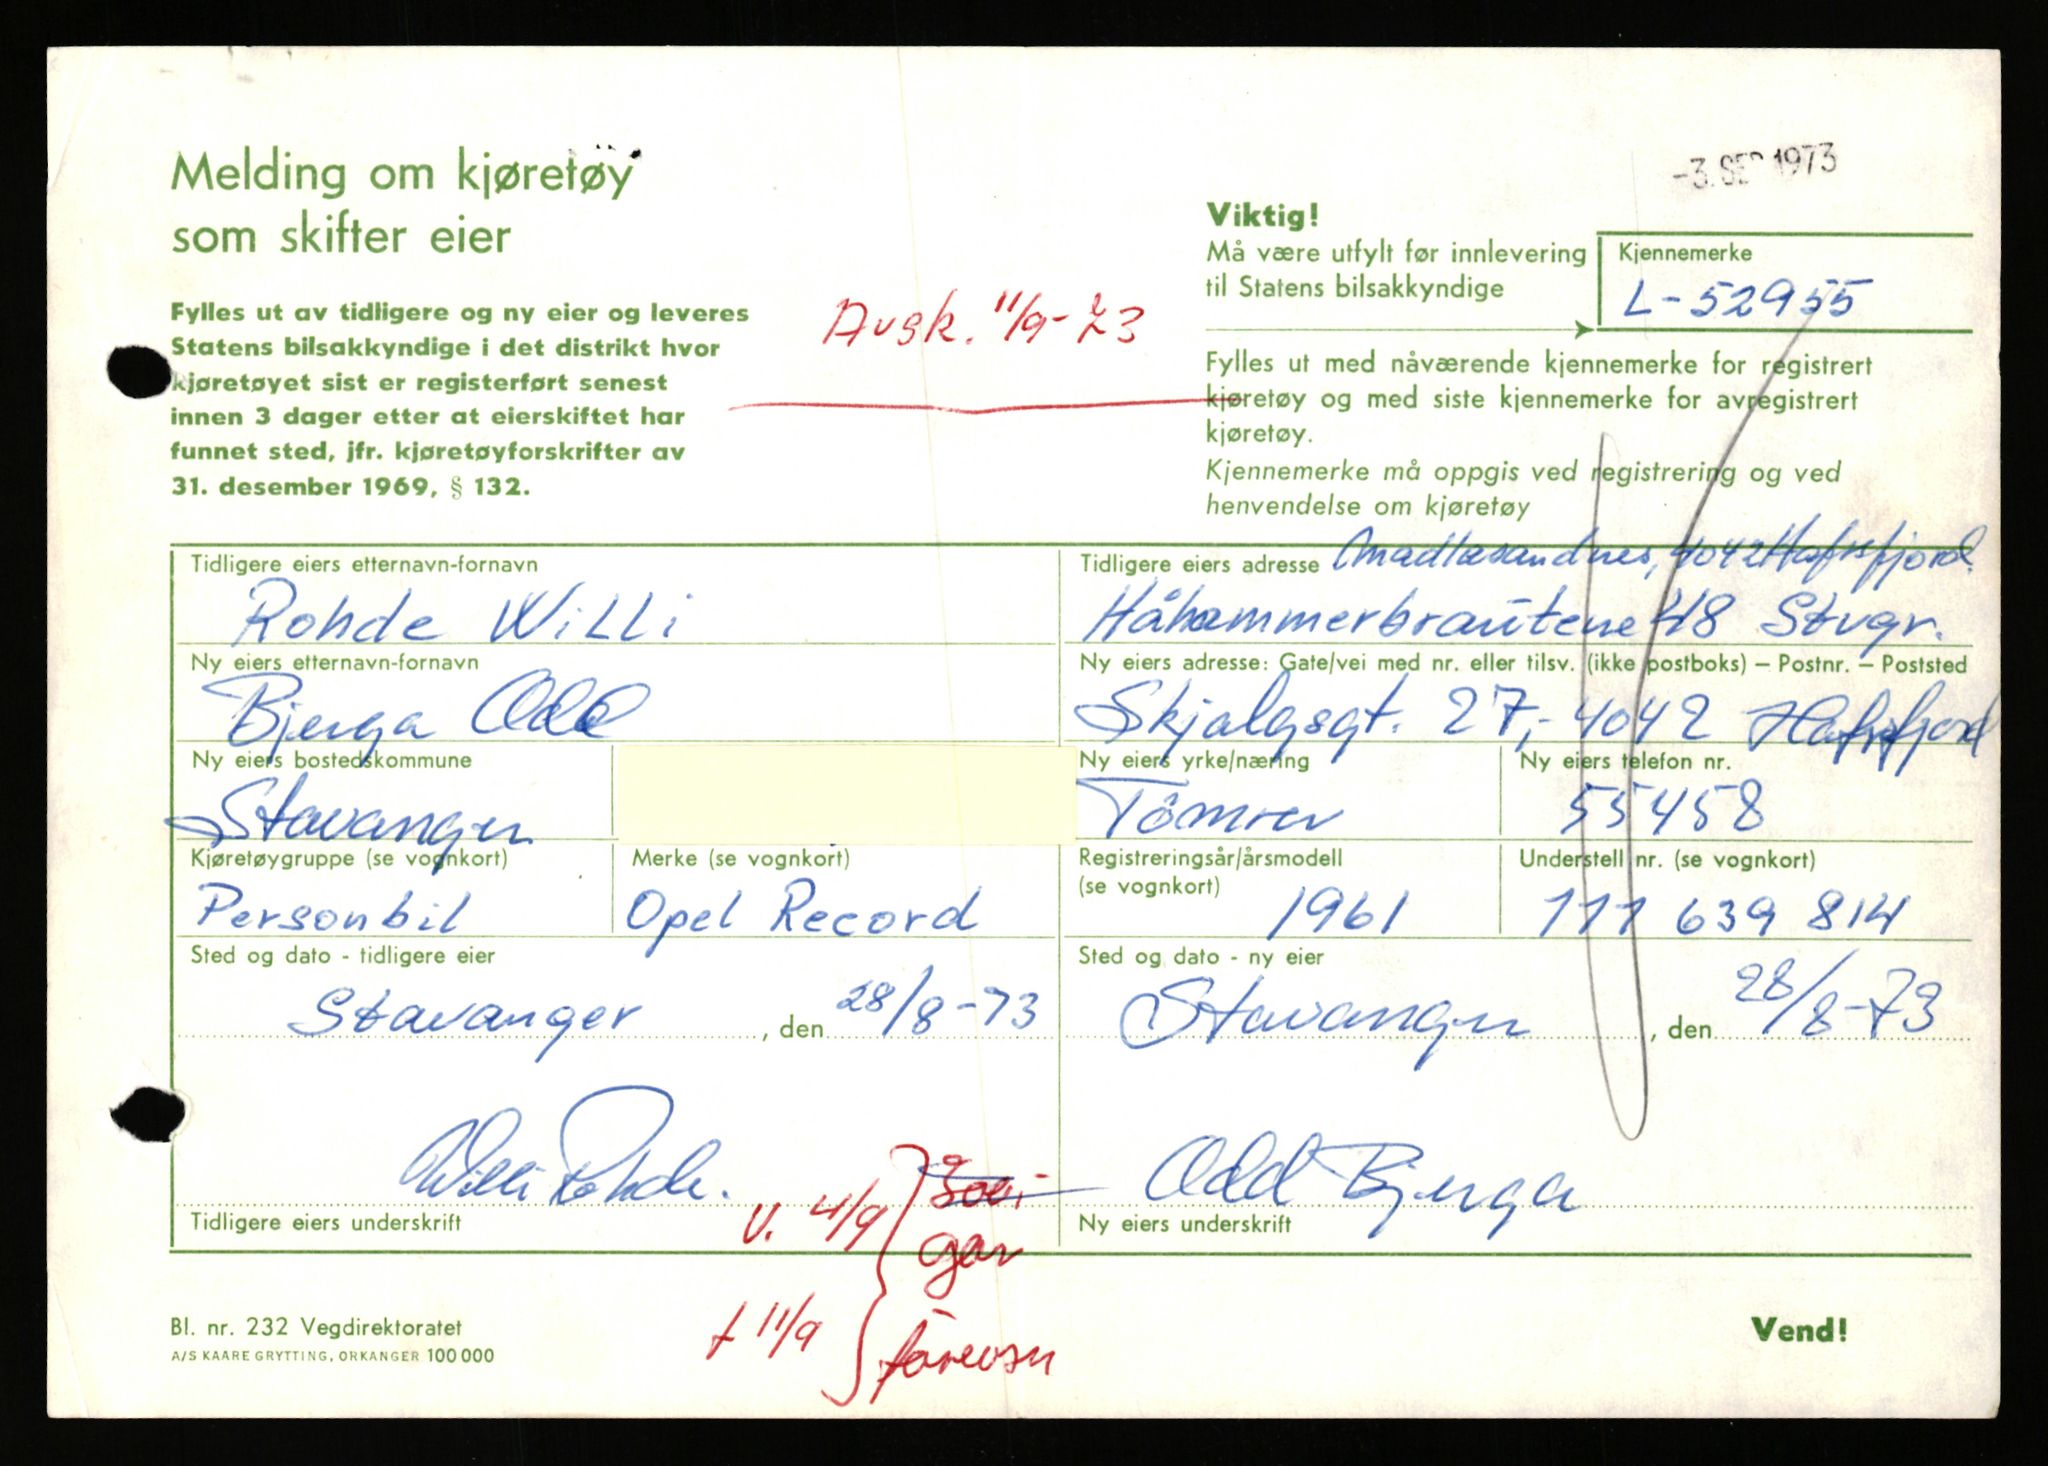 -3. SEP 1973
Melding om kjøretøy
som skifter eier
Fylles ut av tidligere og ny eier og leveres
Statens bilsakkyndige i det distrikt hvor
kjøretøyet sist er registerført senest
innen 3 dager etter at eierskiftet har
funnet sted, jfr. kjøretøyforskrifter av
31. desember 1969, § 132.
Avsk. 11/9-73
Viktig!
Må være utfylt før innlevering
til Statens bilsakkyndige
Kjennemerke
L-52955
Fylles ut med nåværende kjennemerke for registrert
kjøretøy og med siste kjennemerke for avregistrert
kjøretøy.
Kjennemerke må oppgis ved registrering og ved
henvendelse om kjøretøy
Tidligere eiers etternavn-fornavn
Rohde Willi
Tidligere eiers adresse Madlasandnes, 4042 Hafrsfjord.
Håhammerbrautene 48 Stvgr.
Ny eiers etternavn-fornavn
Bjerga Odd
Ny eiers adresse: Gate/vei med nr. eller tilsv. (ikke postboks) – Postnr. – Poststed
Skjalgsgt. 27, - 4042 Hafrsfjord
Ny eiers bostedskommune
Stavanger
Ny eiers yrke/næring
Tömrer
Ny eiers telefon nr.
55458
Kjøretøygruppe (se vognkort)
Personbil
Merke (se vognkort)
Opel Record
Registreringsår/årsmodell
(se vognkort)
1961
Understell nr. (se vognkort)
111 639 814
Sted og dato - tidligere eier
Stavanger, den 28/8-73
Sted og dato - ny eier
Stavanger, den 28/8-73
Willi Rohde.
Odd Bjerga
Tidligere eiers underskrift
Ny eiers underskrift
v. 4/9
gar
t 11/9
Bl. nr. 232 Vegdirektoratet
A/S KAARE GRYTTING, ORKANGER 100 000
Vend!